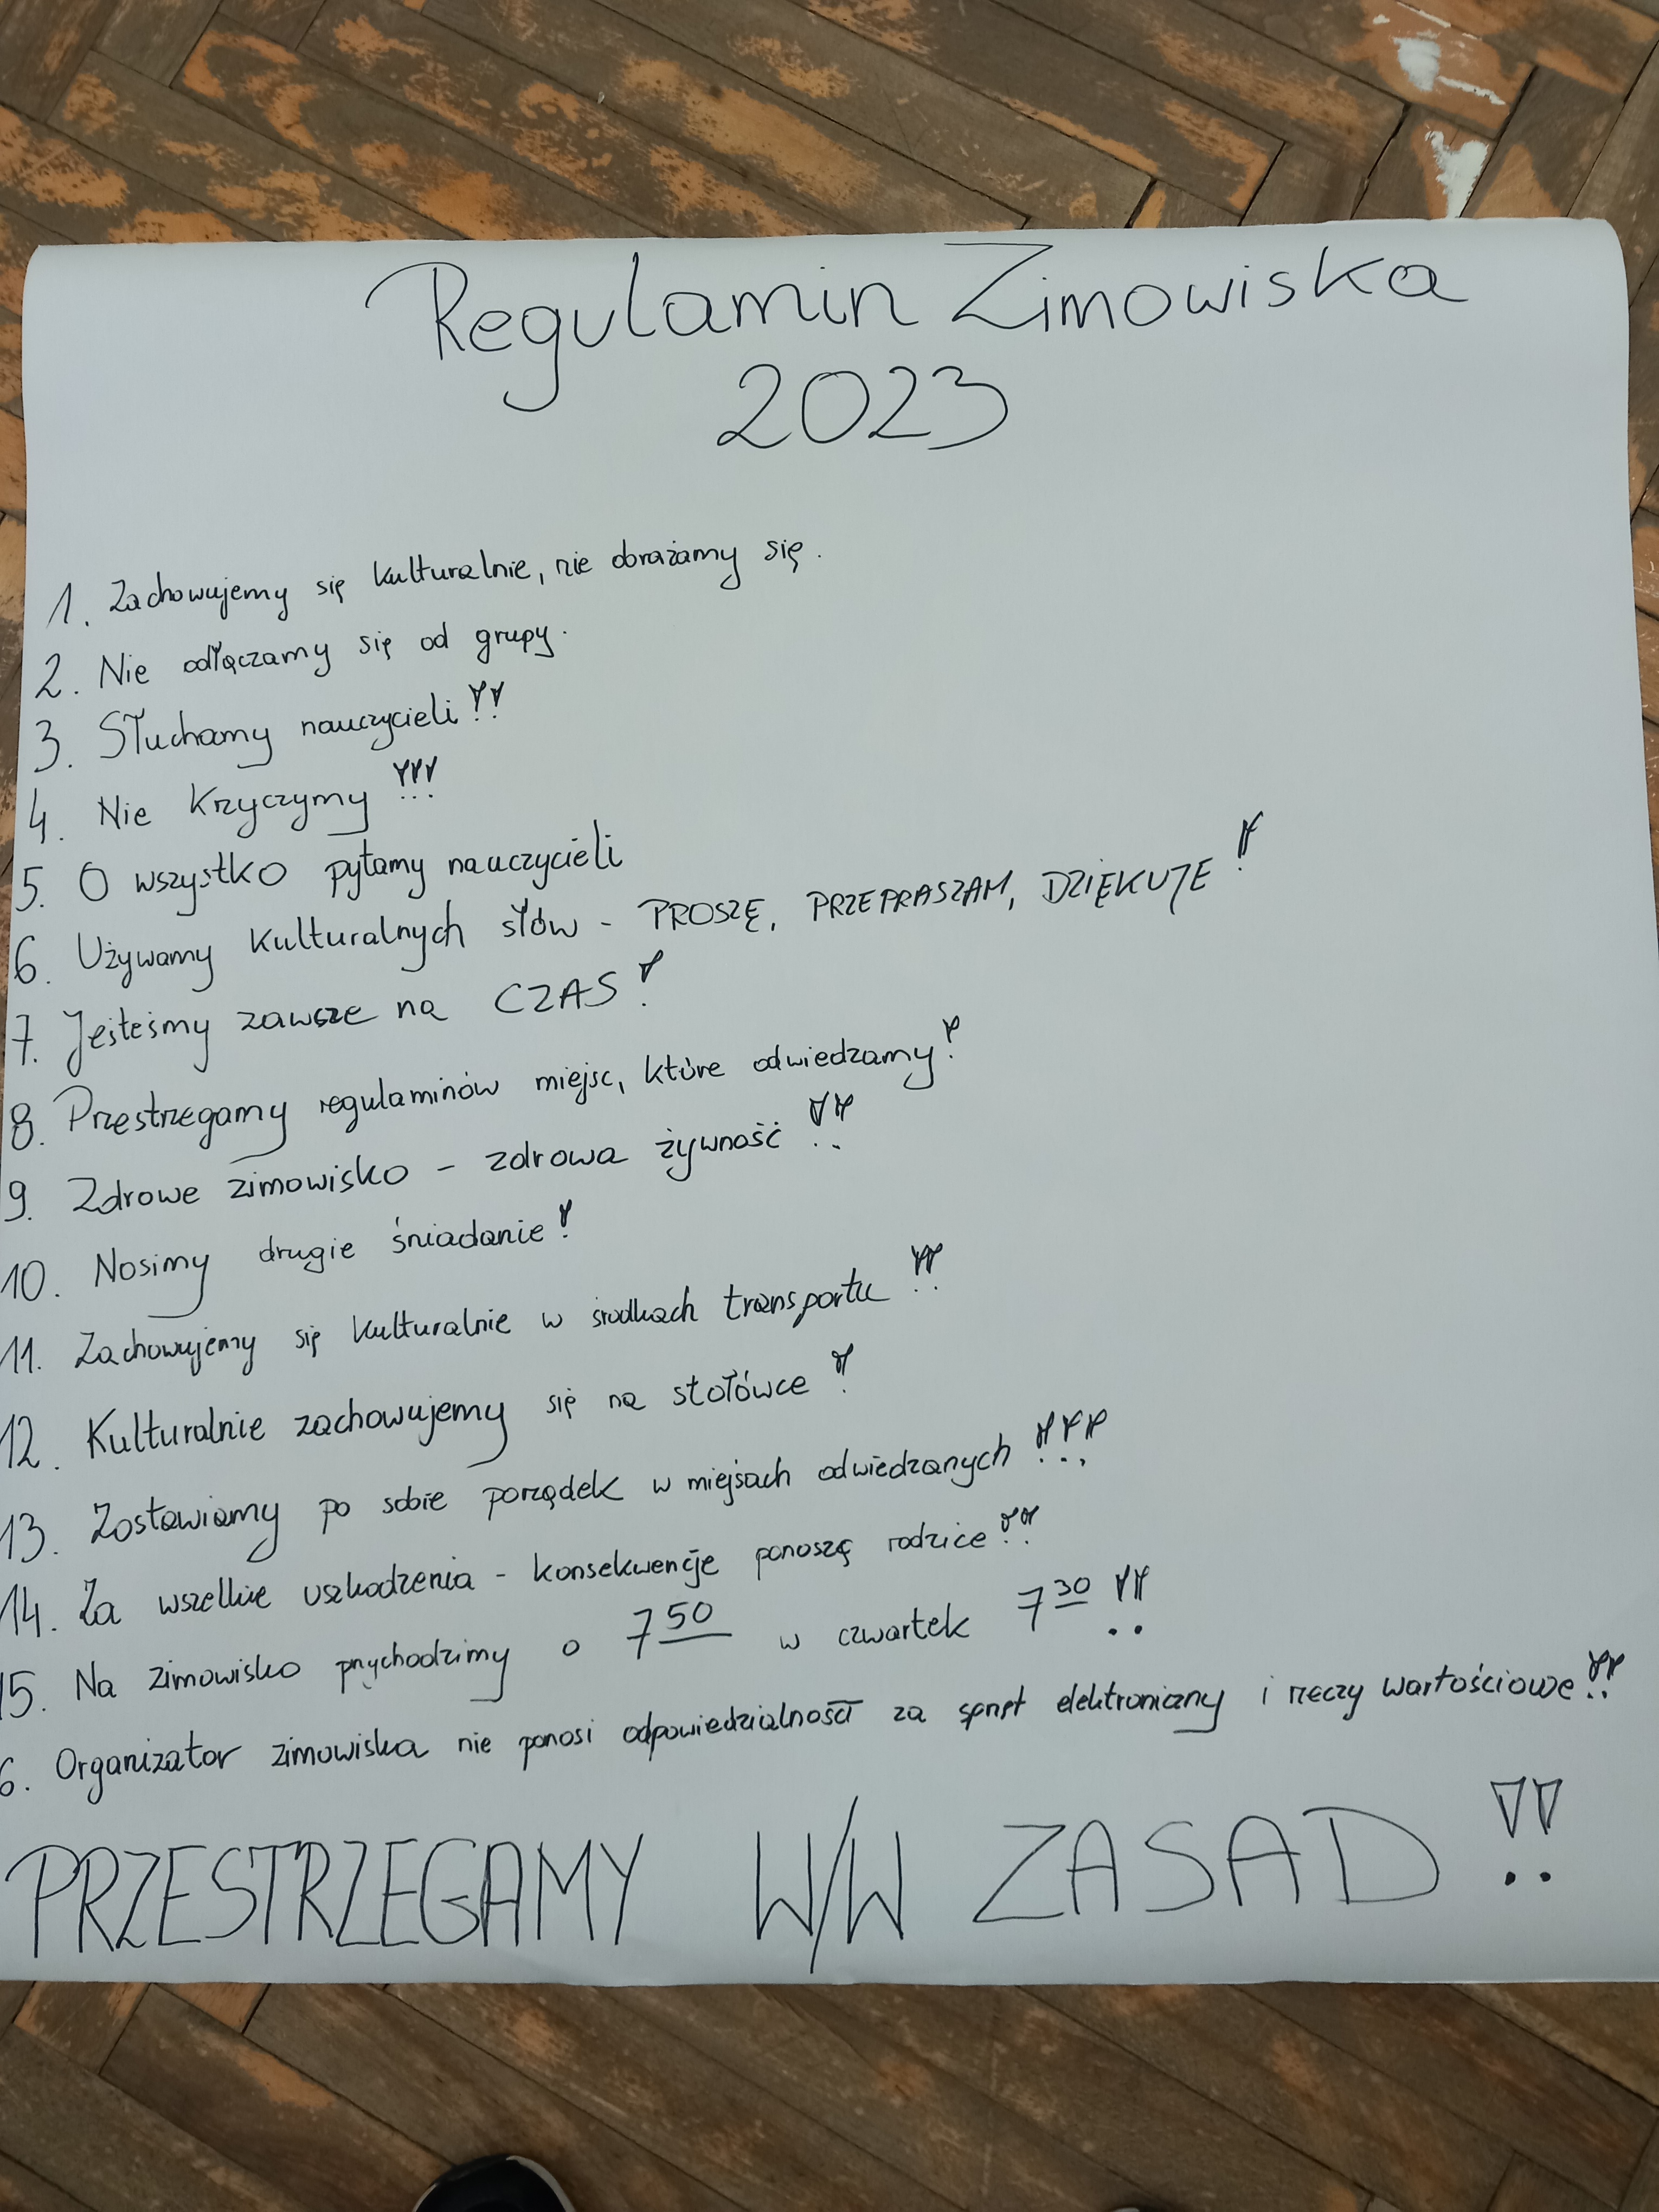 Regulamin Zimowiska
2023
1. Zachowujemy się kulturalnie, nie obrażamy się.
2. Nie odłączamy się od grupy.
3. Słuchamy nauczycieli!!
4. Nie krzyczymy!!!
5. O wszystko pytamy nauczycieli
6. Używamy kulturalnych słów - PROSZĘ, PRZEPRASZAM, DZIĘKUJĘ!
7. Jesteśmy zawsze na CZAS!
8. Przestrzegamy regulaminów miejsc, które odwiedzamy!
9. Zdrowe zimowisko - zdrowa żywność!!
10. Nosimy drugie śniadanie!
11. Zachowujemy się kulturalnie w środkach transportu!!
12. Kulturalnie zachowujemy się na stołówce!
13. Zostawiamy po sobie porządek w miejsach odwiedzanych!!!
14. Za wszelkie uszkodzenia - konsekwencje ponoszą rodzice!!
15. Na zimowisko przychodzimy o 7⁵⁰ w czwartek 7³⁰!!
6. Organizator zimowiska nie ponosi odpowiedzialność za sprzęt elektroniczny i rzeczy wartościowe!!
PRZESTRZEGAMY W/W ZASAD!!